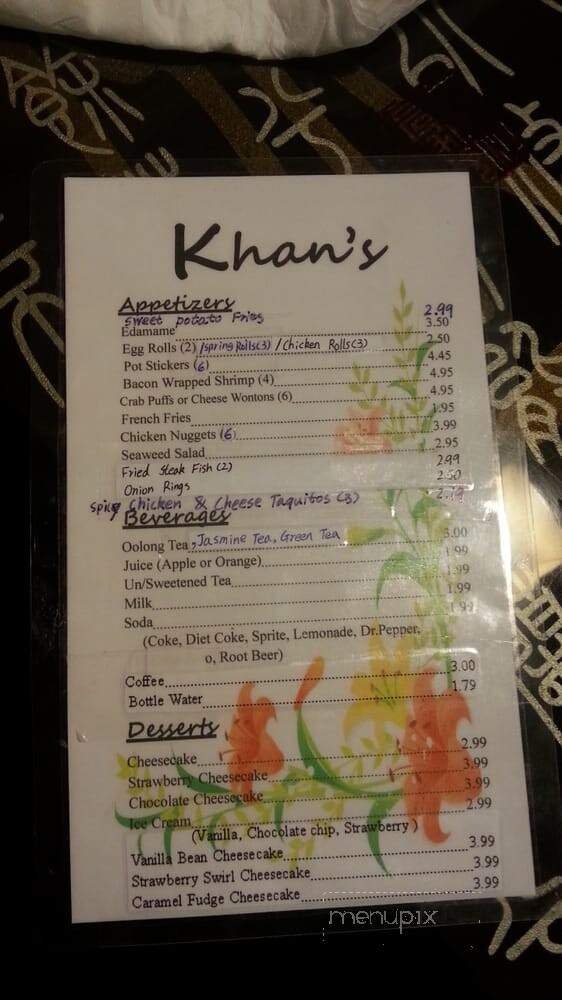 Khan's
Appetizers
Sweet potato Fries 2.99
Edamame 3.50
Egg Rolls (2) /Spring Rolls(3) /Chicken Rolls(3) 2.50
Pot Stickers (6) 4.45
Bacon Wrapped Shrimp (4) 4.95
Crab Puffs or Cheese Wontons (6) 4.95
French Fries 1.95
Chicken Nuggets (6) 3.99
Seaweed Salad 2.95
Fried Steak Fish (2) 2.99
Onion Rings 2.50
Spicy Chicken & Cheese Taquitos (3)
Beverages
Oolong Tea, Jasmine Tea, Green Tea 3.00
Juice (Apple or Orange) 1.99
Un/Sweetened Tea 1.99
Milk 1.99
Soda 1.99
(Coke, Diet Coke, Sprite, Lemonade, Dr.Pepper,
o, Root Beer)
Coffee 3.00
Bottle Water 1.79
Desserts
Cheesecake 2.99
Strawberry Cheesecake 3.99
Chocolate Cheesecake 3.99
Ice Cream 2.99
(Vanilla, Chocolate chip, Strawberry )
Vanilla Bean Cheesecake 3.99
Strawberry Swirl Cheesecake 3.99
Caramel Fudge Cheesecake 3.99
menupix